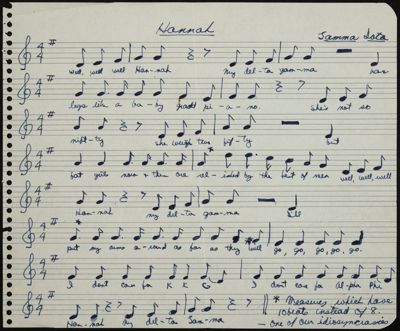 Hannah
Gamma Iota
well, well well Han-nah my del-ta gam-ma has
legs like a ba-by grand pi-a-no. She's not so
nift-ty she weighs two fif-ty but
fat girls now & then are rel-ished by the best of men well, well, well
Han-nah my del-ta gam-ma I'll
put my arms a-round as far as they will go, go, go, go, go.
I don't care for K K G I don't care for Al-pha Phi
Han-nah my del-ta Gam-ma
* Measures which have
10 beats instead of 8.
- One of our idiosyncrasies